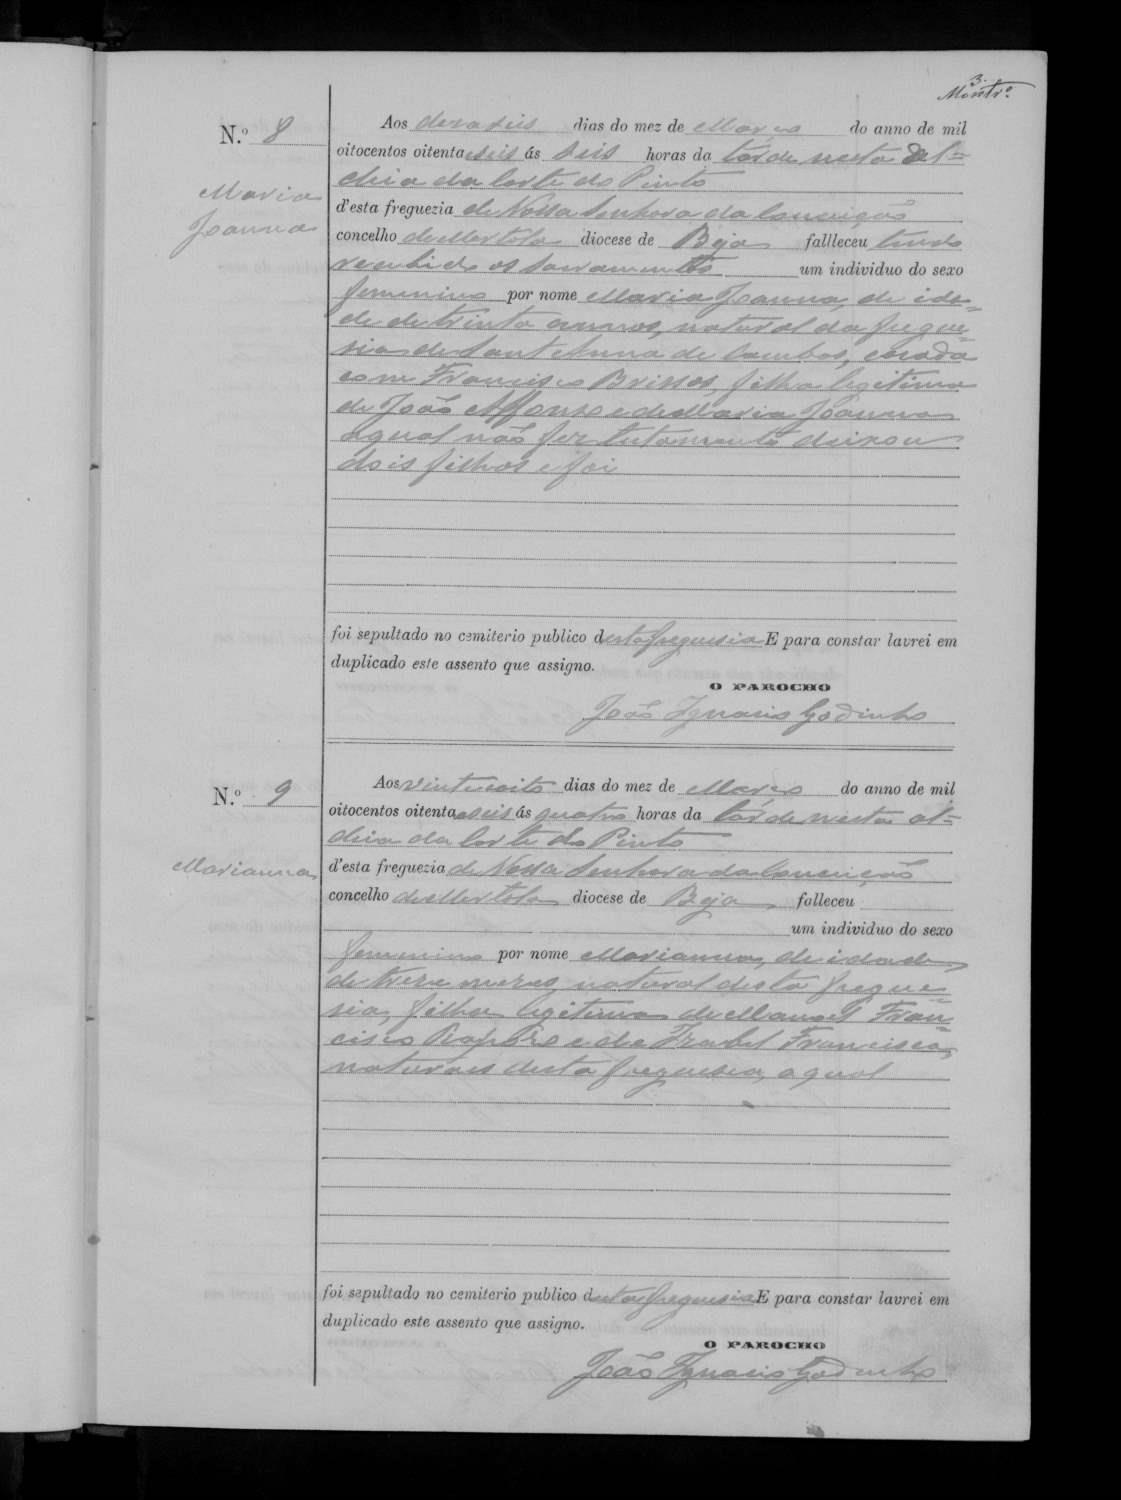 3.
Montrº
N.º 8
Maria
Joanna
Aos deraseis dias do mez de Março do anno de mil
oitocentos oitenta e seis ás seis horas da tarde nesta Al=
deia da Corte do Pinto
d'esta freguezia de Nossa Senhora da Conceição
concelho de Mertola diocese de Beja fallleceu tendo
recebido os sacramentos um individuo do sexo
femenino por nome Maria Joanna, de ida=
de de trinta annos, natural da fregue=
sia de Sant Anna de Cambas, casada
com Francisco Brissos, filha legitima
de João Affonso e de Maria Joanna
a qual não fez testamento deixou
dois filhos e foi
foi sepultado no cemiterio publico desta freguesia E para constar lavrei em
duplicado este assento que assigno.
O PAROCHO
João Ignacio Godinho
N.º 9
Marianna
Aos vinte e oito dias do mez de Março do anno de mil
oitocentos oitenta e seis ás quatro horas da tarde nesta al=
deia da Corte do Pinto
d'esta freguezia de Nossa Senhora da Conceição
concelho de Mertola diocese de Beja falleceu
um individuo do sexo
femenino por nome Marianna, de idade
de treze mezes, natural desta fregue=
sia, filha legitima de Manoel Fran=
cisco e de Izabel Francisca,
naturaes desta freguesia, a qual
foi sepultado no cemiterio publico desta freguesia E para constar lavrei em
duplicado este assento que assigno.
O PAROCHO
João Ignacio Godinho